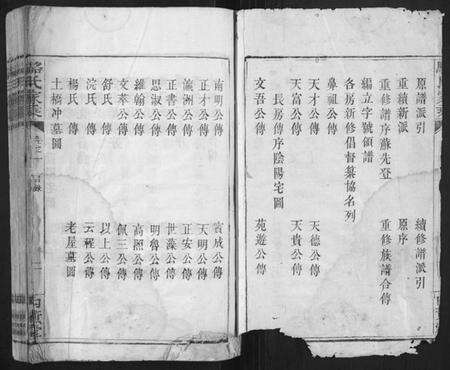 原譜派引
續修譜派引
重續新派
原序
重修譜序蘇先登
重修族譜合傳
編立字號領譜
各房新修倡督纂協名列
鼻祖公傳
天才公傳
天德公傳
天富公傳
天貴公傳
長房傳序陰陽宅圖
文吾公傳
苑遊公傳
南明公傳
賓成公傳
正才公傳
天明公傳
瀛洲公傳
正安公傳
正書公傳
世藻公傳
思淑公傳
明魯公傳
維翰公傳
高照公傳
文萃公傳
佩三公傳
舒氏傳
以上公傳
浣氏傳
云程公傳
楊氏傳
土橋冲墓圖
老屋墓圖